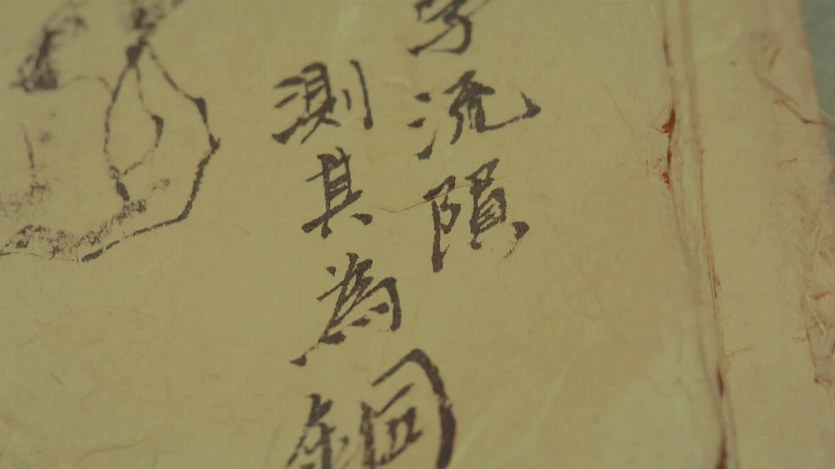 流隕
測其為銅